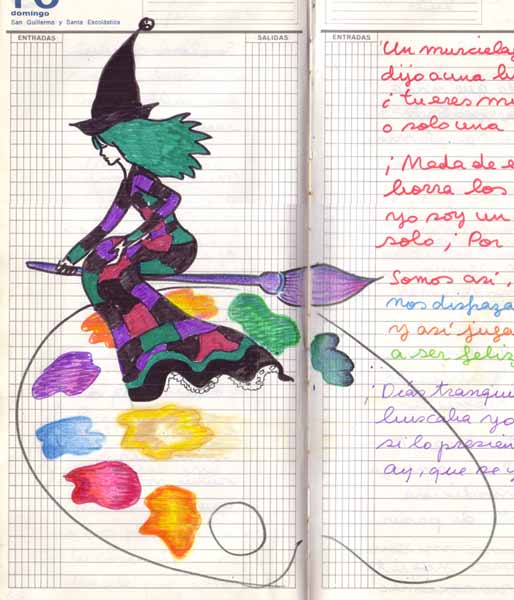 domingo
San Guillermo y Santa Escolástica
ENTRADAS
SALIDAS
ENTRADAS
Un murciela
dijo a una
¡ tu eres
o solo una
¡ Nada de
borra los
yo soy un
solo, ¡ Por
Somos así,
nos disfraza
y así juga
a ser feliz
¡Días tranqui
buscaba yo
si lo presien
ay, que se